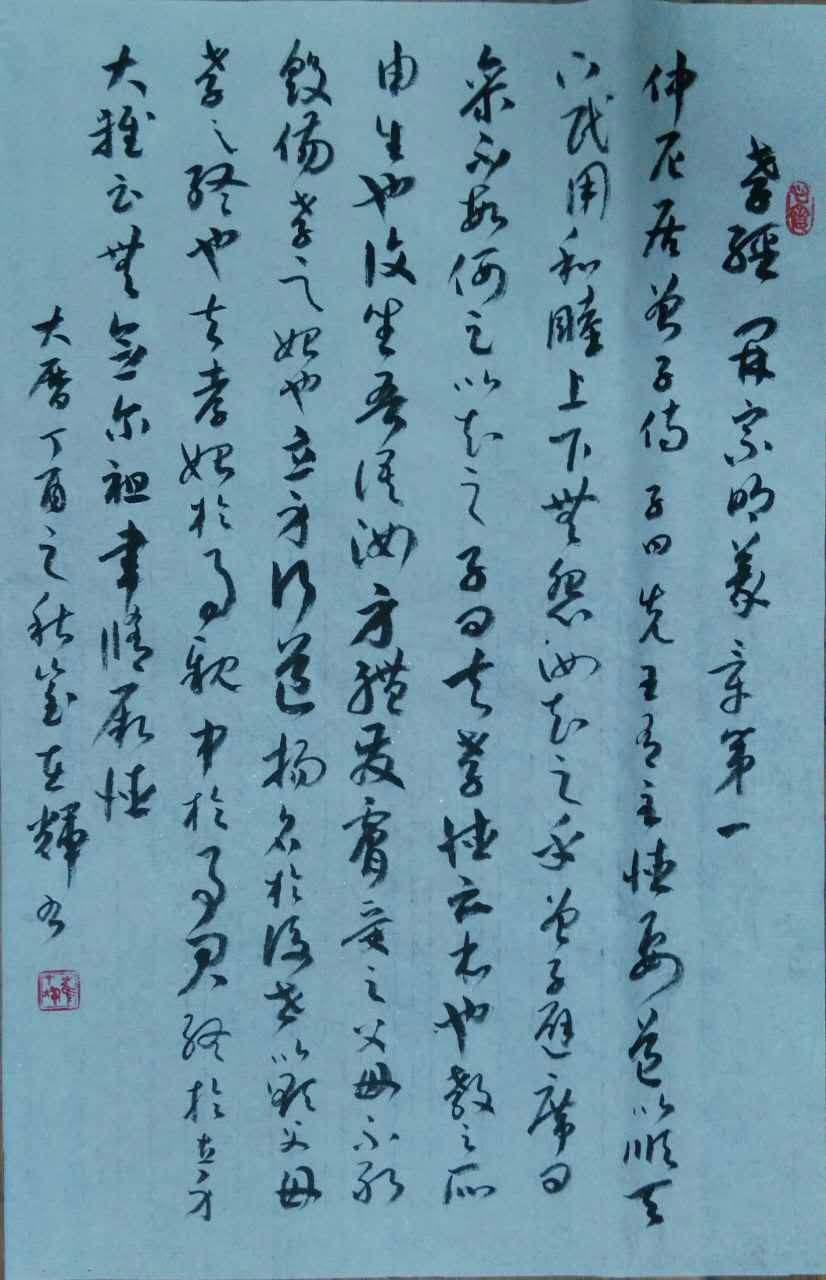 孝經 開宗明義章第一
仲尼居曾子侍子曰先王有至德要道以順天
下民用和睦上下無怨汝知之乎曾子避席曰
參不敏何足以知之子曰夫孝德之本也教之所
由生也復坐吾語汝身體髮膚受之父母不敢
毀傷孝之始也立身行道揚名於後世以顯父母
孝之終也夫孝始於事親中於事君終於立身
大雅云無念尔祖聿脩厥德
大曆丁酉之秋在輝